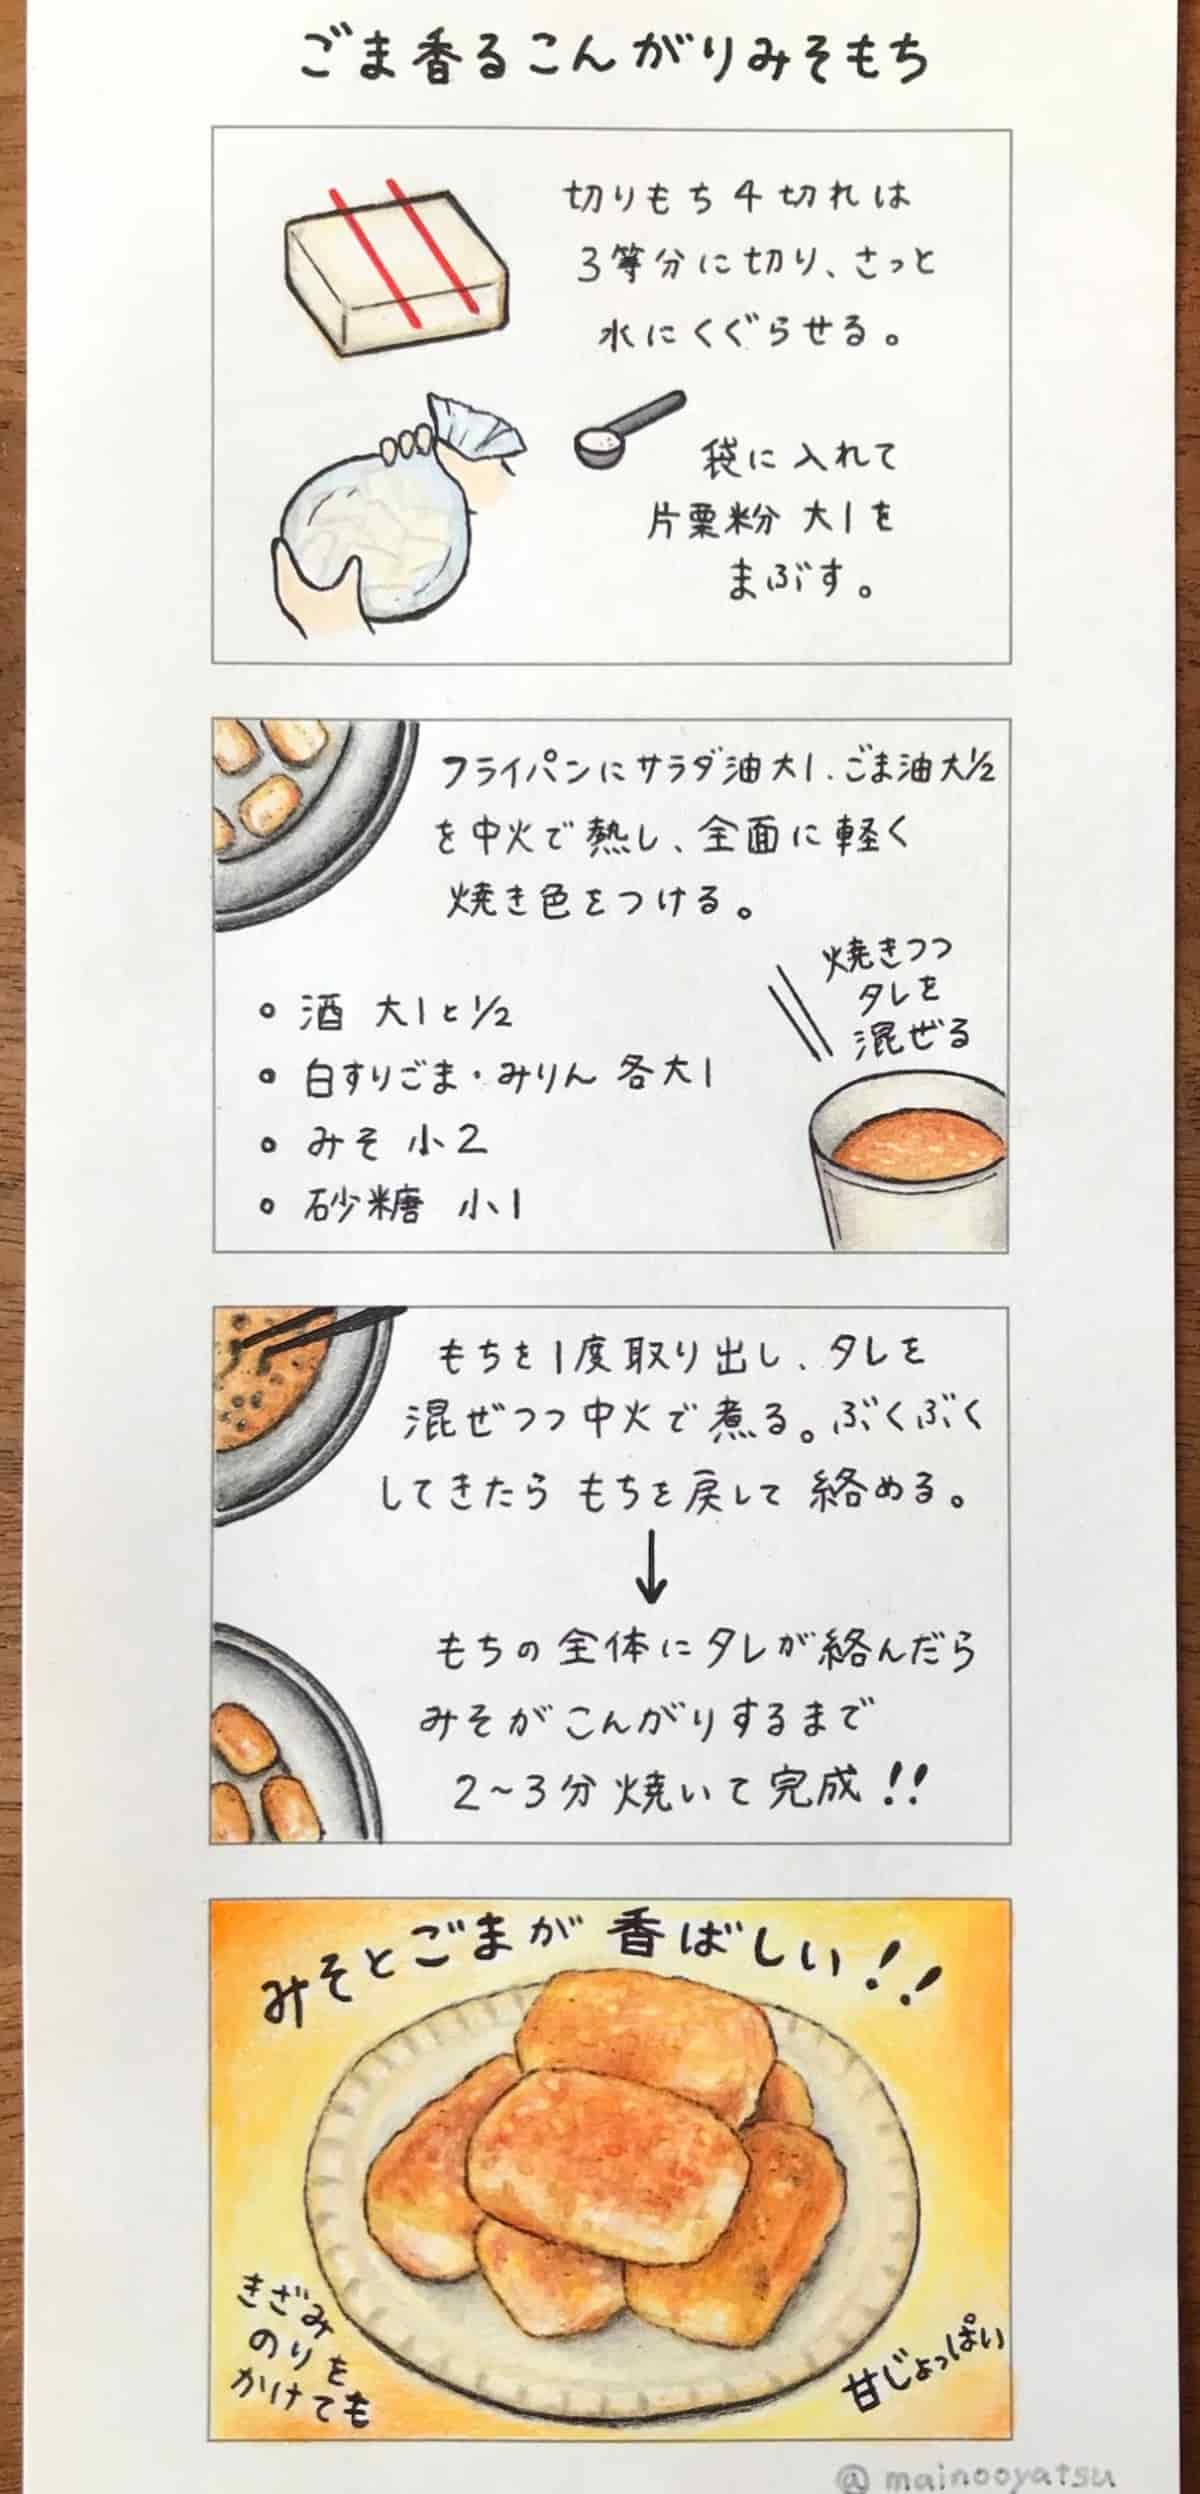 ごま香るこんがりみそもち
切りもち4切れは
3等分に切り、さっと
水にくぐらせる。
袋に入れて
片栗粉 大1を
まぶす。
フライパンにサラダ油大1、ごま油大1/2
を中火で熱し、全面に軽く
焼き色をつける。
焼きつつ
タレを
混ぜる
• 酒 大1と1/2
• 白すりごま・みりん 各大1
• みそ 小2
• 砂糖 小1
もちを1度取り出し、タレを
混ぜつつ中火で煮る。ぶくぶく
してきたら もちを戻して 絡める。
↓
もちの全体にタレが絡んだら
みそがこんがりするまで
2~3分焼いて完成!!
みそとごまが香ばしい!!
きざみ
のりを
かけても
甘じょっぱい
@mainooyatsu